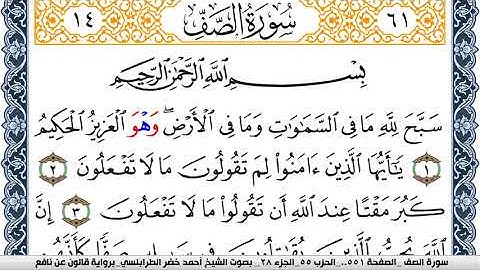 ١٤ سُورَةُ الصَّفِّ ٦١
بِسْمِ اللَّهِ الرَّحْمَٰنِ الرَّحِيمِ
سَبَّحَ لِلَّهِ مَا فِي السَّمَٰوَٰتِ وَمَا فِي الْأَرْضِۖ وَهْوَ الْعَزِيزُ الْحَكِيمُ
١ يَٰٓأَيُّهَا الَّذِينَ ءَامَنُواْ لِمَ تَقُولُونَ مَا لَا تَفْعَلُونَ ٢
كَبُرَ مَقْتًا عِندَ اللَّهِ أَن تَقُولُواْ مَا لَا تَفْعَلُونَ ٣ إِنَّ
اللَّهَ يُحِبُّ الَّذِينَ يُقَٰتِلُونَ فِي سَبِيلِهِ صَفًّا كَأَنَّهُم
سورة الصف _الصفحة ٥٥١_ الحزب ٥٥_ الجزء ٢٨_ بصوت الشيخ أحمد خضر الطرابلسي_ برواية قالون عن نافع